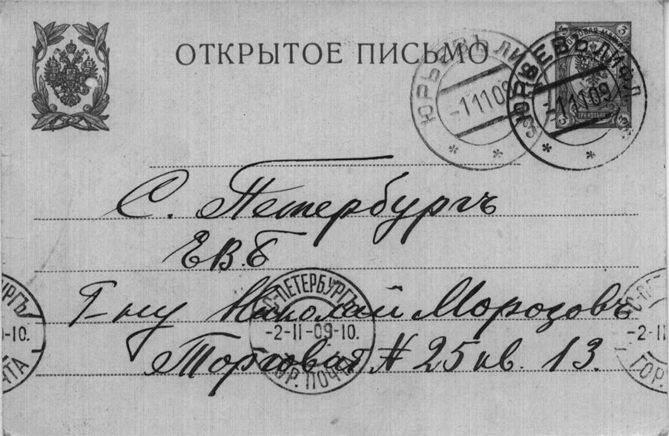 ОТКРЫТОЕ ПИСЬМО
ЮРЬЕВЪ ЛИФЛ
-1 11 09
ЮРЬЕВЪ ЛИФЛ.
-1 11 09
С. Петербургъ
ЕВБ
Г-ну Николай Морозовъ
Торговая N 25 кв. 13.
С-ПЕТЕРБУРГЪ
-2-11-09-10.
ГОР. ПОЧТА